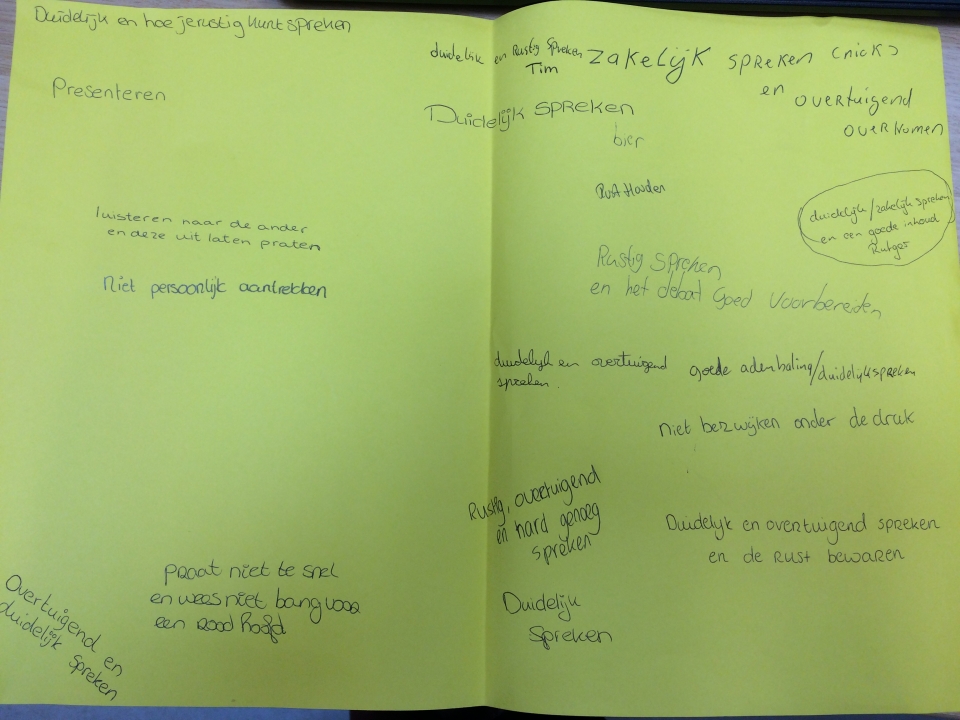 Duidelijk en hoe je rustig kunt spreken
Presenteren
luisteren naar de ander
en deze uit laten praten
Niet persoonlijk aantrekken
praat niet te snel
en wees niet bang voor
een rood hoofd
Overtuigend en
duidelijk spreken
duidelijk en Rustig Spreken
Tim
zakelijk spreken (nick)
en overtuigend
overkomen
Duidelijk spreken
bier
Rust Houden
duidelijk/zakelijk spreken
en een goede inhoud
Rutger
Rustig Spreken
en het debat Goed Voorbereiden
duidelijk en overtuigend
spreken..
goede ademhaling/duidelijk spreken
niet bezwijken onder de druk
Rustig, overtuigend
en hard genoeg
spreken
Duidelijk en overtuigend spreken
en de Rust bewaren
Duidelijk
Spreken